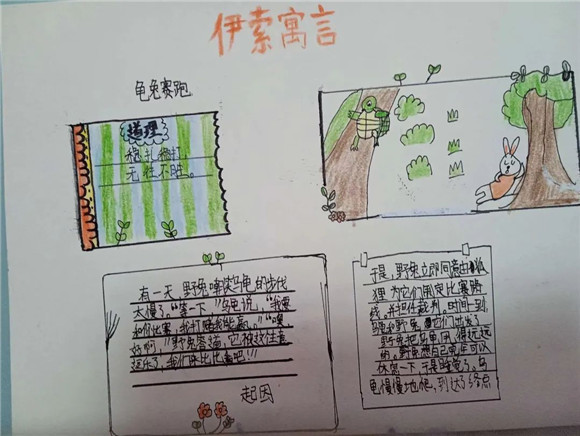 伊索寓言
龟兔赛跑
道理
稳扎稳打
无往不胜。
有一天,野兔嘲笑乌龟的步伐
太慢了,“等一下,”乌龟说,“我要
和你比赛,我打赌我能赢。”“噢,
好啊,”野兔答道,它被这住意
逗乐了,我们来比比看吧!”
起因
于是,野兔立即同意由狐
狸为它们制定比赛路
线,并担任裁判。时间一到,
乌龟和野兔它们出发了
野兔把乌龟甩得远远
的。野兔想自己完全可以
休息一下,于是睡觉了。乌
龟慢慢地爬,到达了终点